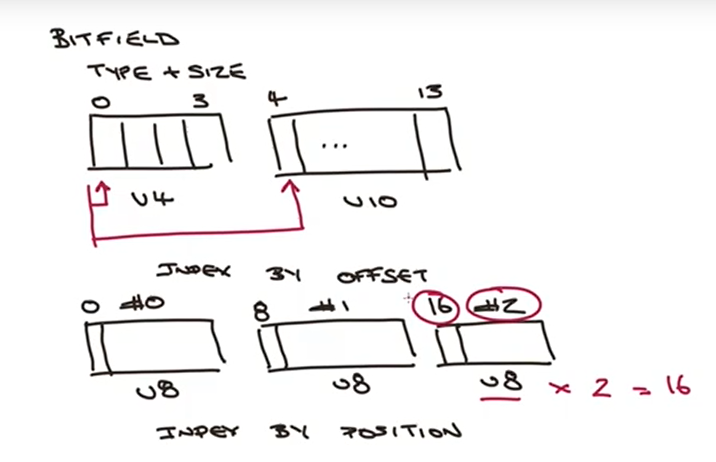 BITFIELD
TYPE + SIZE
0 3 4 13
...
U4 U10
INDEX BY OFFSET
0 #0 8 #1 16 #2
U8 U8 U8 x 2 = 16
INDEX BY POSITION